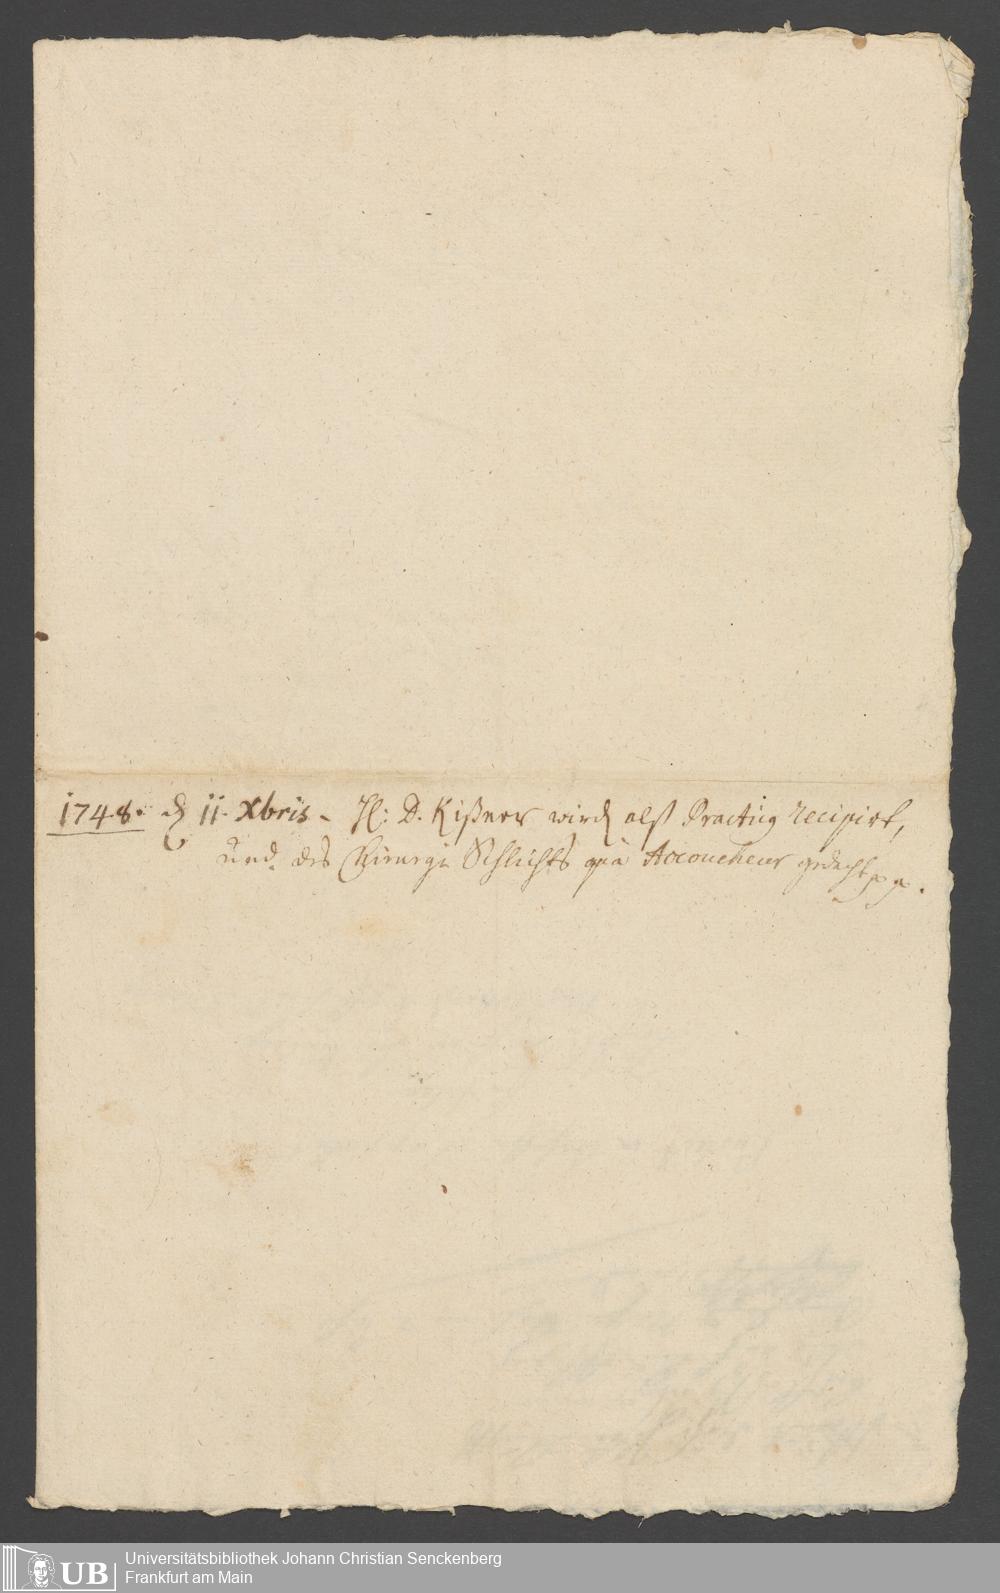 1748. d 11. Xbris. H: D. Kißner wird alß Practicq recipirt,
und des Chirurgi Schlichts quà Accoucheur gedacht pp.
UB
Universitätsbibliothek Johann Christian Senckenberg
Frankfurt am Main